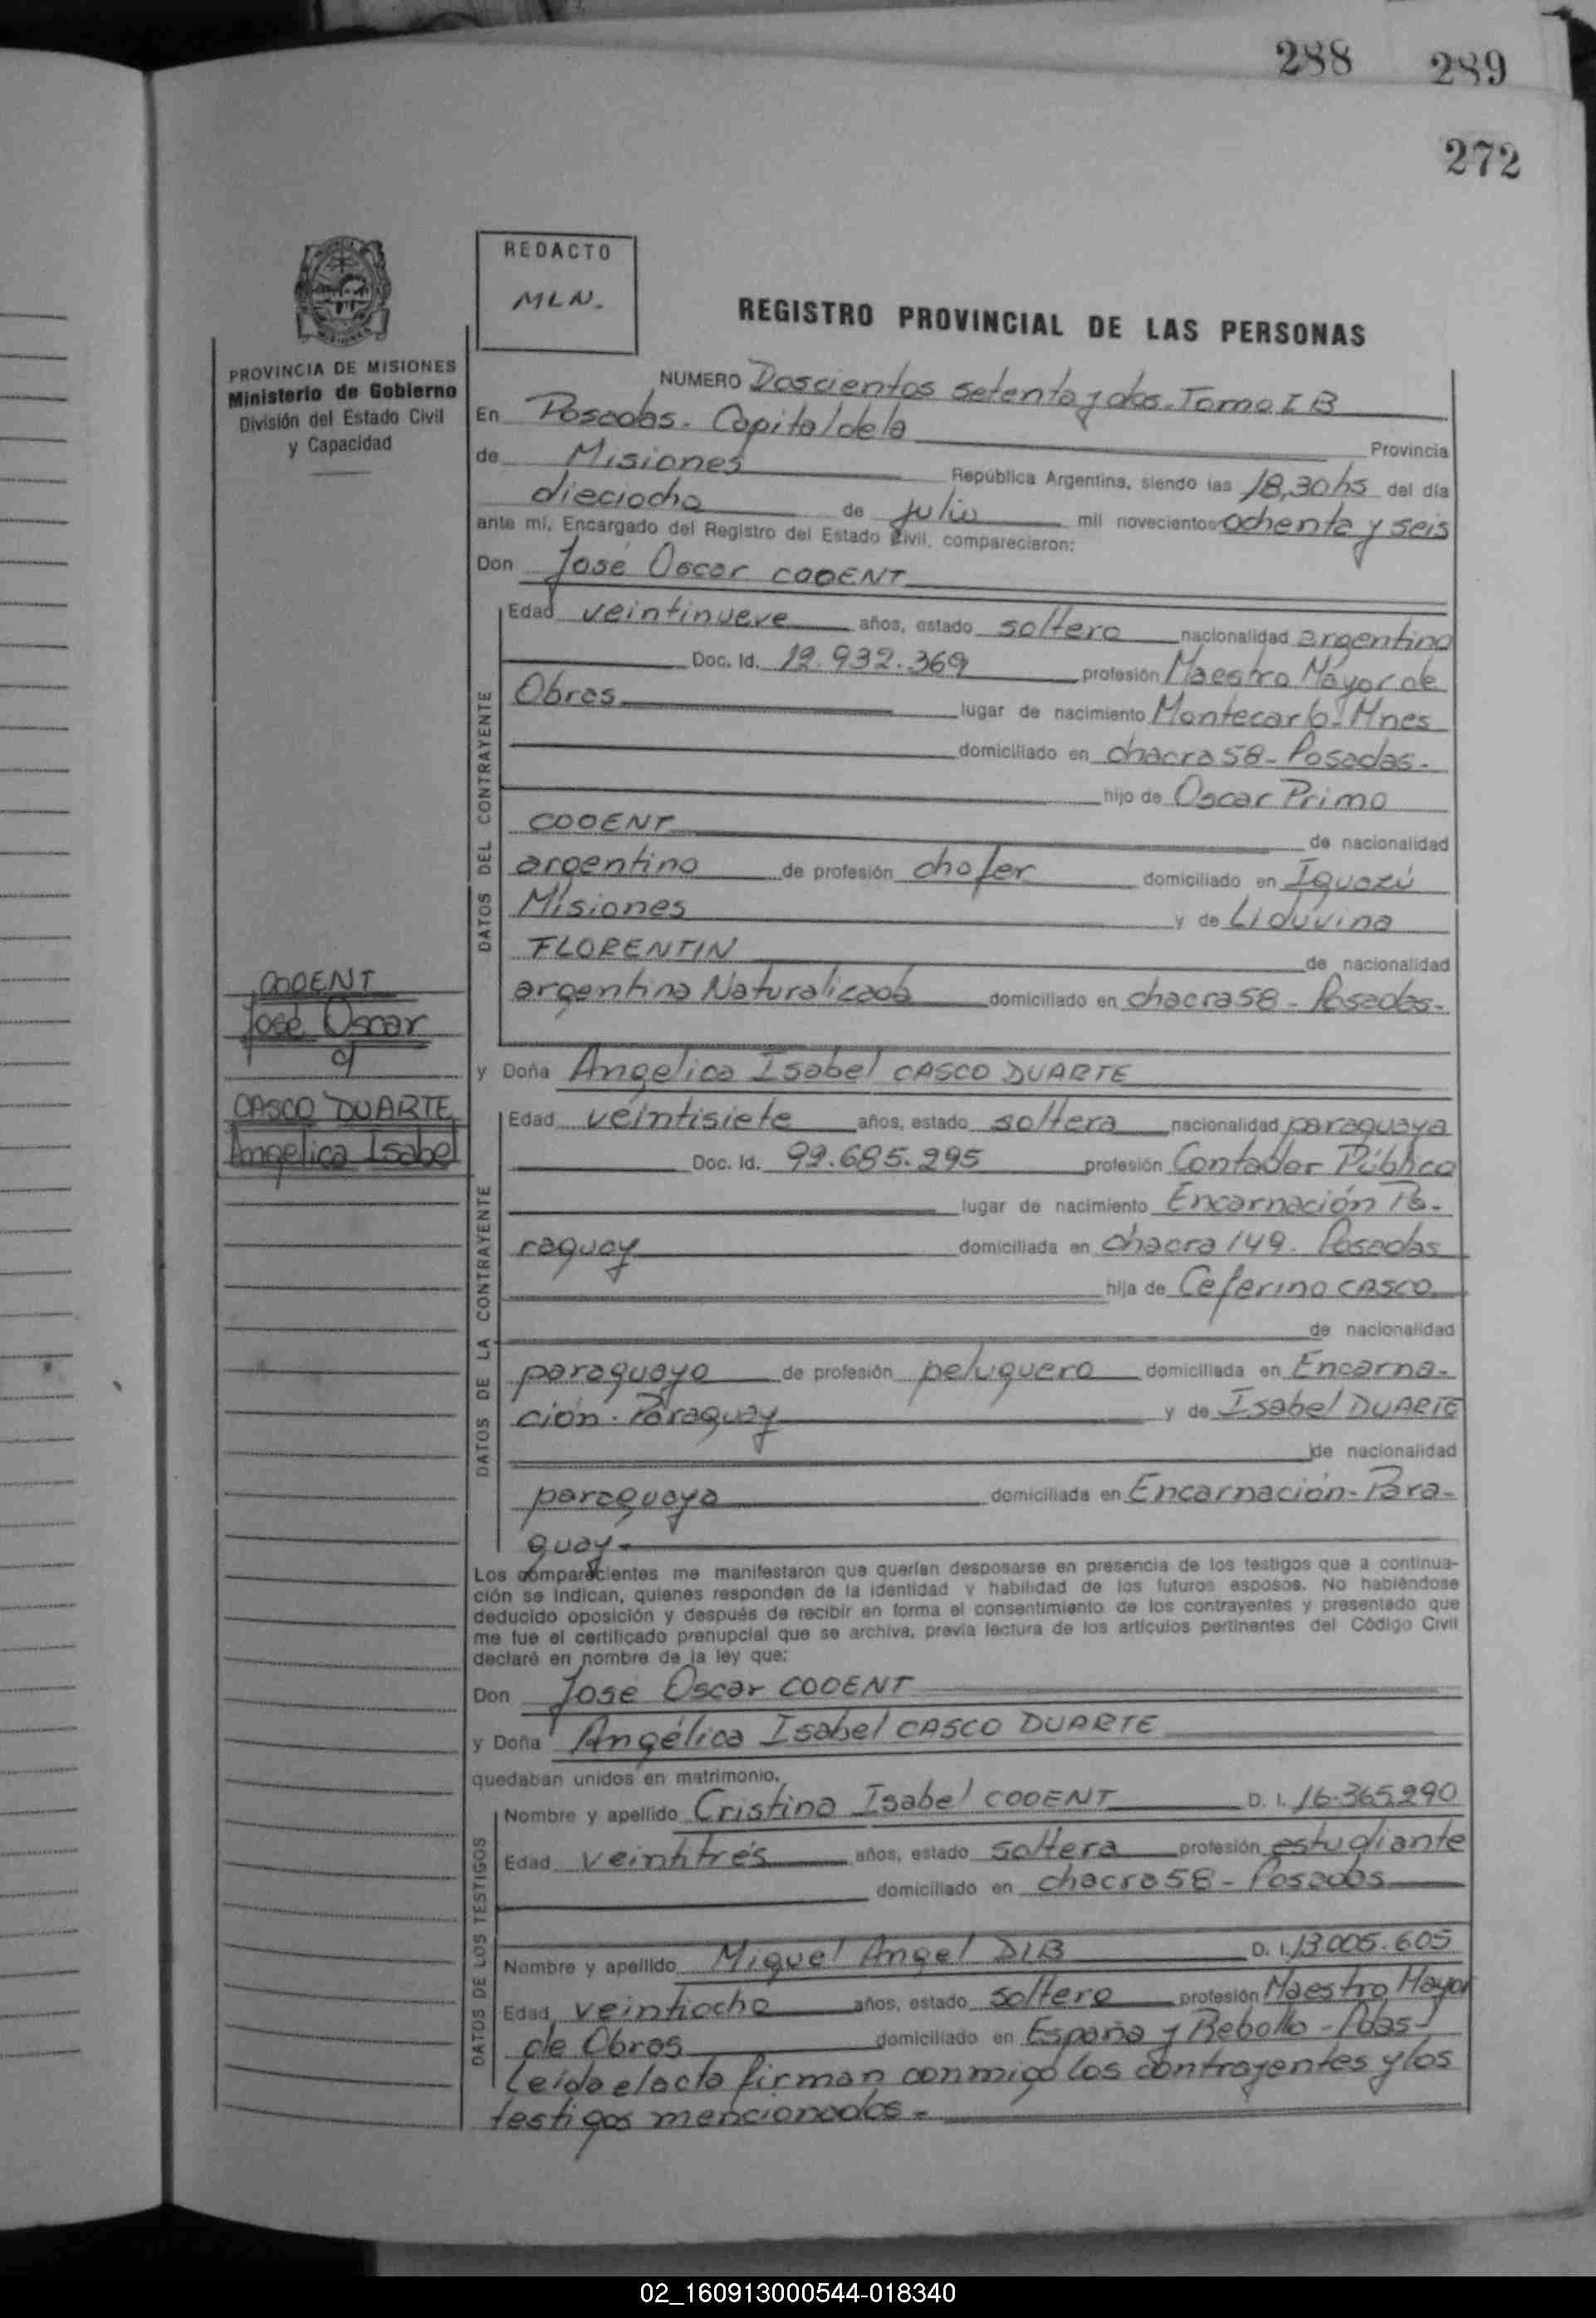 288 289
272
REDACTO
MLN.
REGISTRO PROVINCIAL DE LAS PERSONAS
PROVINCIA DE MISIONES
Ministerio de Gobierno
División del Estado Civil
y Capacidad
NUMERO Doscientos setenta y dos. Tomo I B
En Posadas. Capital de la Provincia
de Misiones República Argentina, siendo las 18,30 hs del día
dieciocho de julio mil novecientos ochenta y seis
ante mí, Encargado del Registro del Estado Civil, comparecieron:
Don José Oscar COOENT
Edad veintinueve años, estado soltero nacionalidad argentino
Doc. Id. 12.932.369 profesión Maestro Mayor de
Obras lugar de nacimiento Montecarlo-Mnes
domiciliado en chacra 58-Posadas.
hijo de Oscar Primo
COOENT de nacionalidad
argentino de profesión chofer domiciliado en Iguazú
Misiones y de Liduvina
FLORENTIN de nacionalidad
argentina Naturalizada domiciliado en chacra 58-Posadas.
DATOS DEL CONTRAYENTE
COOENT
José Oscar
c/
CASCO DUARTE
Angelica Isabel
y Doña Angelica Isabel CASCO DUARTE
Edad veintisiete años, estado soltera nacionalidad paraguaya
Doc. Id. 99.685.295 profesión Contador Público
lugar de nacimiento Encarnación Pa-
raguay domiciliada en chacra 149. Posadas
hija de Ceferino CASCO
de nacionalidad
paraguayo de profesión peluquero domiciliada en Encarna-
ción. Paraguay y de Isabel DUARTE
de nacionalidad
paraguaya domiciliada en Encarnación-Para-
guay-
DATOS DE LA CONTRAYENTE
Los comparecientes me manifestaron que querían desposarse en presencia de los testigos que a continua-
ción se indican, quienes responden de la identidad y habilidad de los futuros esposos. No habiéndose
deducido oposición y después de recibir en forma el consentimiento de los contrayentes y presentado que
me fue el certificado prenupcial que se archiva, previa lectura de los artículos pertinentes del Código Civil
declaré en nombre de la ley que:
Don José Oscar COOENT
y Doña Angélica Isabel CASCO DUARTE
quedaban unidos en matrimonio.
Nombre y apellido Cristina Isabel COOENT D. I. 16.365.290
Edad veintitrés años, estado soltera profesión estudiante
domiciliado en chacra 58-Posadas
Nombre y apellido Miguel Angel DIB D. I. 13.005.605
Edad veintiocho años, estado soltero profesión Maestro Mayor
de Obras domiciliado en España y Rebollo-Pdas-
DATOS DE LOS TESTIGOS
Leída el acta firman conmigo los contrayentes y los
testigos mencionados.-
02_160913000544-018340